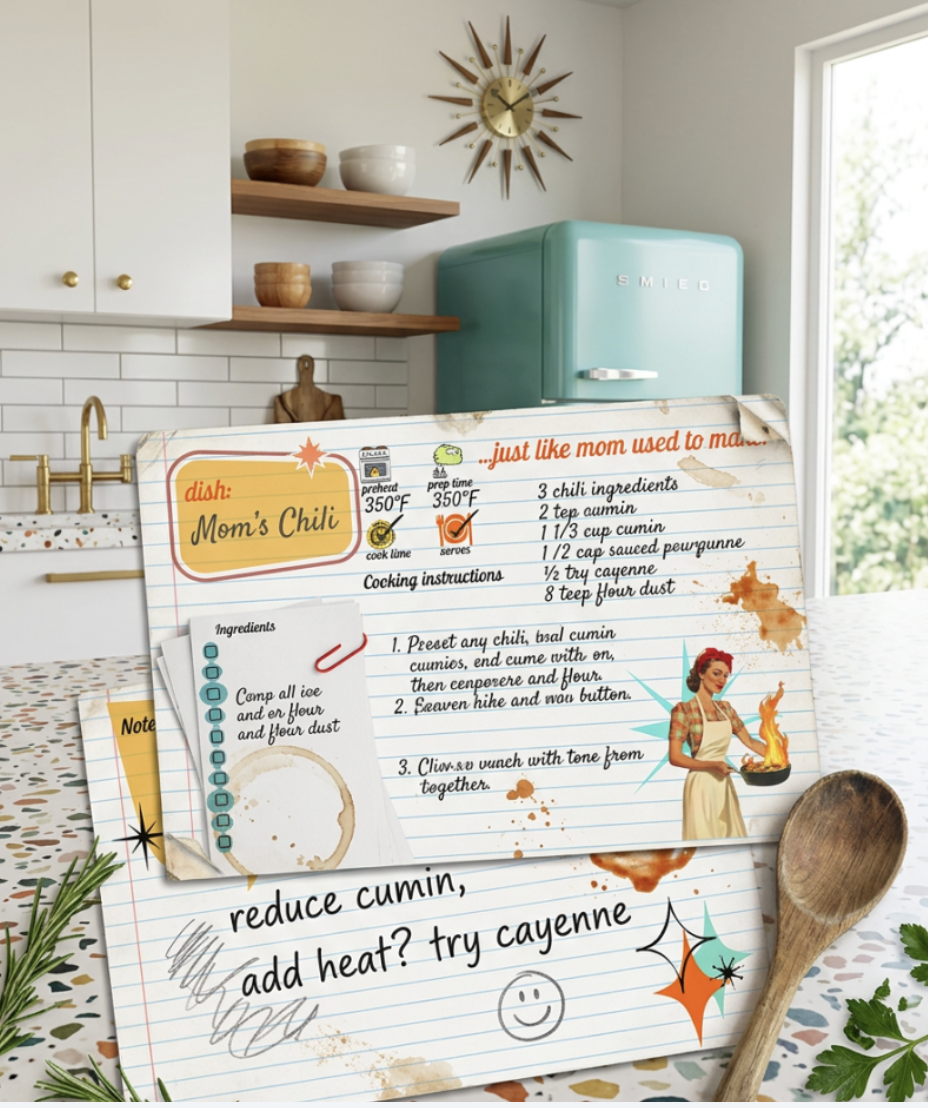 SMIEO
...just like mom used to make.
dish:
Mom's Chili
preheat
350°F
prep time
350°F
cook time
serves
3 chili ingredients
2 tep aumin
1 1/3 cup cumin
1/2 cap sauced
½ try cayenne
8 teep flour dust
Cooking instructions
Ingredients
Comp all ice
and or flour
and flour dust
1. Preset any chili, bsal cumin
cuumios, end cume with on,
then cenposere and flour.
2. hike and wou button.
3. vunch with tone from
together.
Note
reduce cumin,
add heat? try cayenne